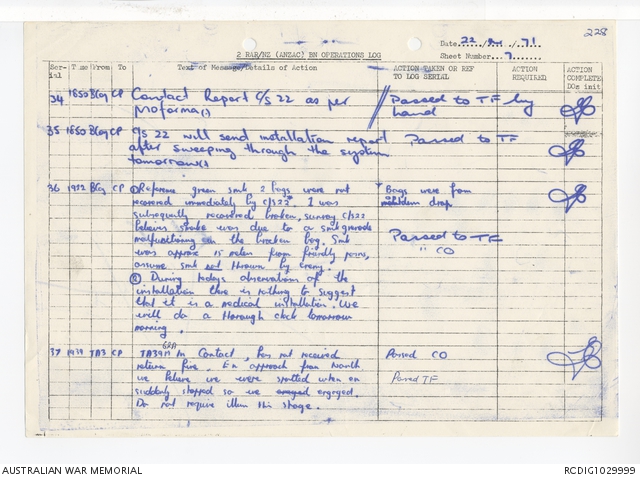 228
Date 22 / / 71
2 RAR/NZ (ANZAC) BN OPERATIONS LOG
Sheet Number 7
Ser-ial
Time
From
To
Text of Message/Details of Action
ACTION TAKEN OR REF TO LOG SERIAL
ACTION REQUIRED
ACTION COMPLETE DOs init
34 1850 BCoy CP Contact Report C/S 22 as per
Moforma(.)
Passed to TF by
hand
35 1850 BCoy CP C/S 22 will send installation report
after sweeping through the system
tomorrow(.)
Passed to TF
36 1922 BCoy CP ① Reference green smk 2 bags were not
recovered immediately by C/S 22. 1 was
subsequently recovered broken, sunray C/S 22
believes smoke was due to a smk grenade
malfunctioning in the broken bag. Smk
was approx 15 meters from friendly posns,
assume smk not thrown by enemy.
② During todays observations of the
installation there is nothing to suggest
that it is a medical installation. We
will do a thorough check tomorrow
morning.
Bags were from
drop
Passed to TF
" CO
37 1939 TA3 CP TA3939 In Contact, has not received
return fire. En approach from North
we believe we were spotted when en
suddenly stopped so we engaged.
Do not require illum this stage.
Passed CO
Passed TF
AUSTRALIAN WAR MEMORIAL
RCDIG1029999